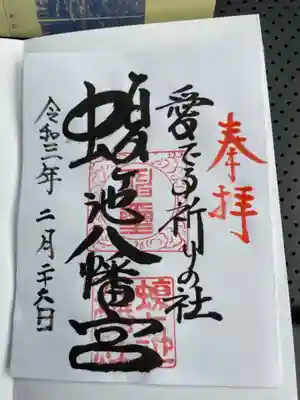 奉拝
愛でる祈りの社
蝮ヶ池八幡宮
令和三年二月二十六日